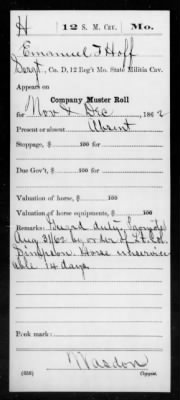 H 12 S. M. Cav. Mo.
Emanuel F Hoff
Sergt., Co. D, 12 Reg't Mo. State Militia Cav.
Appears on
Company Muster Roll
for Nov & Dec, 1862
Present or absent Absent
Stoppage, $ 100 for
Due Gov't, $ 100 for
Valuation of horse, $ 100
Valuation of horse equipments, $ 100
Remarks: Guard duty
Aug 31/62 by order of Lt. Col.
Simpson Horse unservice
able 14 days
Book mark:
Wasdon
(358) Copyist.